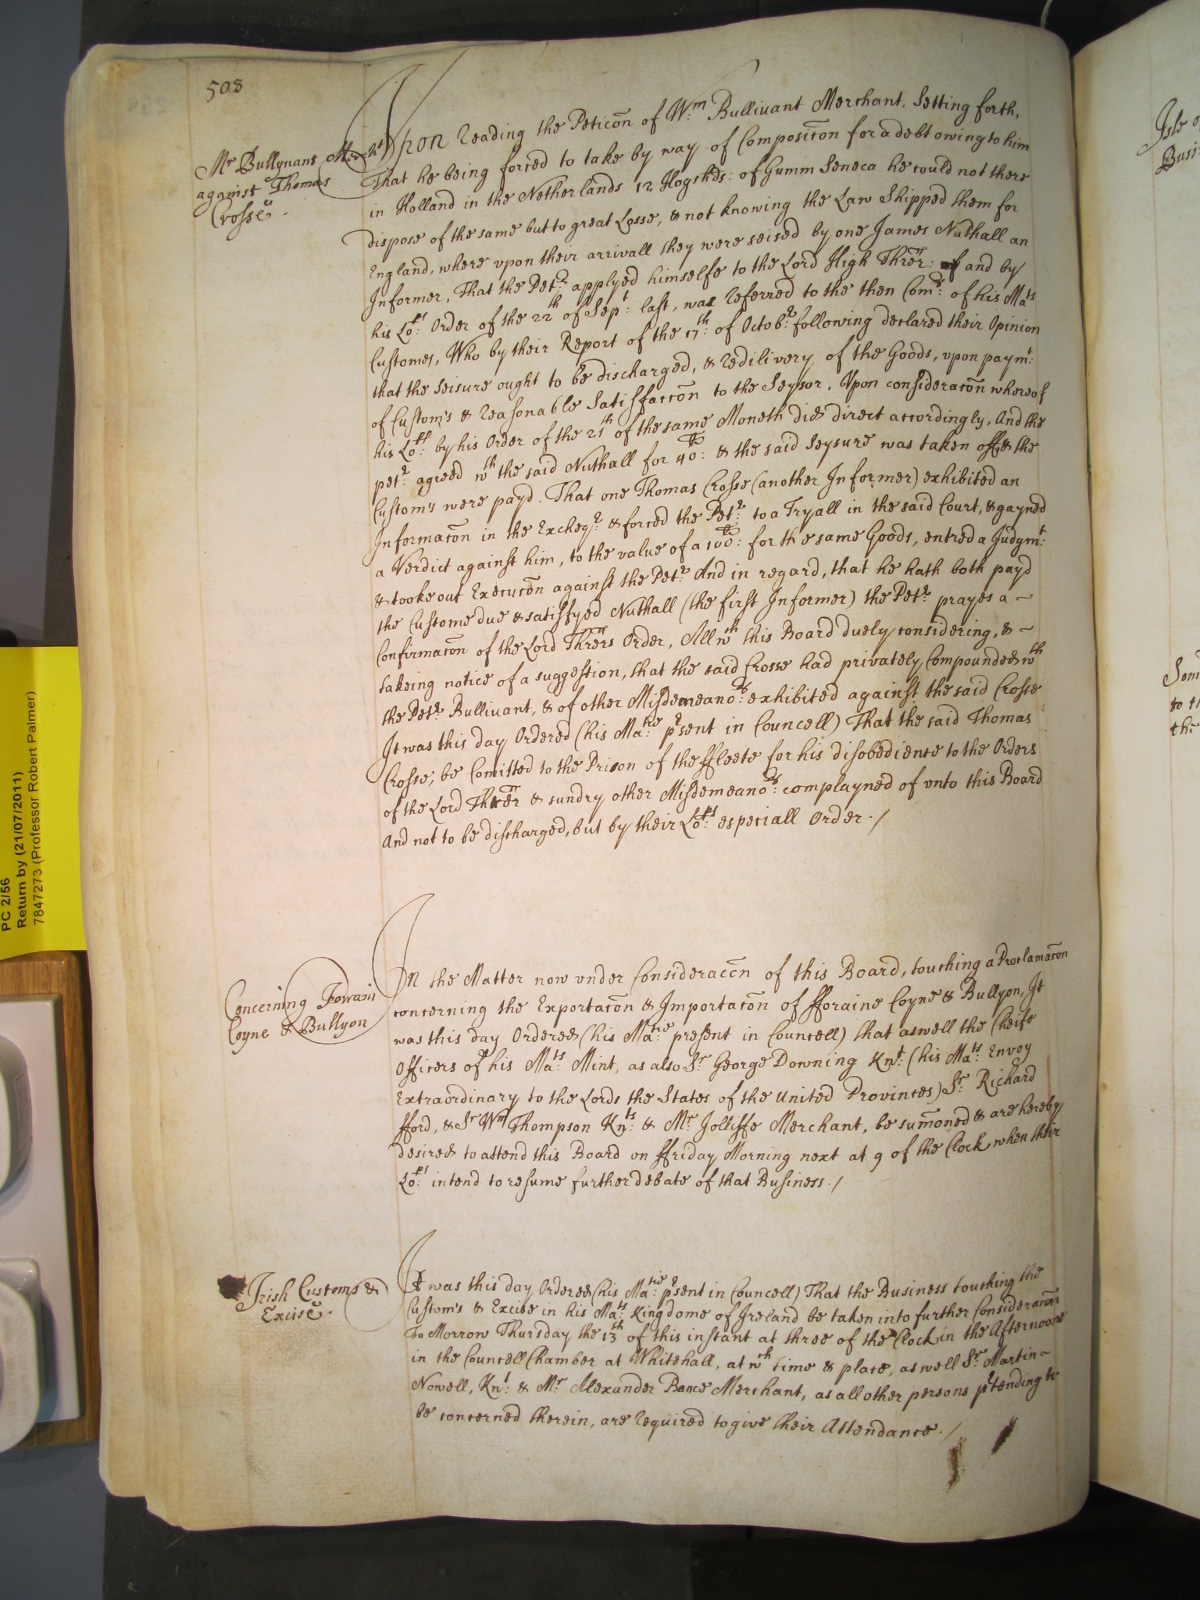 508
Mr Bullynant Mercht
against Thomas
Crosse.
Upon reading the Peticõn of Wm Bullivant Merchant, Setting forth,
That he being forced to take by way of Composicõn for a debt owing to him
in Holland in the Netherlands 12 Hogshds: of Gumm Seneca he could not there
dispose of the same but to great Losse, & not knowing the Law Shipped them for
England, where vpon their arrivall they were seised by one James Nuthall an
Informer, That the Petr: applyed himselfe to the Lord High Threr: and by
his Lopps: Order of the 22th of Sept: last, was referred to the then Comrs: of his Mats
Customes, Who by their Report of the 17th: of Octobr: following declared their Opinion
that the seisure ought to be discharged, & redilivery of the Goods, vpon paymt:
of Custom's & reasonable Satisfaccõn to the Seysor, Vpon consideracõn whereof
his Lopp: by his Order of the 21th of the same Moneth did direct accordingly, And the
petr: agreed wth the said Nuthall for 40li: & the said Seysure was taken off & the
Custom's were payd. That one Thomas Crosse (another Informer) exhibited an
Informacõn in the Excheqr: & forced the Petr: to a Tryall in the said Court, & gayned
a Verdict against him, to the value of a 100li: for the same Goods, entred a Judgmt:
& tooke out Execucõn against the Petr: And in regard, that he hath both payd
the Custome due & satisfyed Nuthall (the first Informer) the Petr: prayes a
Confirmacõn of the Lord Thrers Order, All wch this Board duely considering, &
takeing notice of a suggestion, that the said Crosse had privately Compounded wth
the Petr: Bullivant, & of other Misdemeanors: exhibited against the said Crosse
It was this day Ordered (his Matie: p̃sent in Councell) That the said Thomas
Crosse; be Com̃itted to the Prison of the ffleete for his disobedience to the Orders
of the Lord Threr & sundry other Misdemeanors: complayned of vnto this Board
And not to be discharged, but by their Lopps: especiall Order./
Concerning Forrain
Coyne & Bullyon
In the Matter now vnder Consideracõn of this Board, touching a Proclamacõn
concerning the Exportacõn & Importacõn of fforaine Coyne & Bullyon, It
was this day Ordered (his Matie: present in Councell) that aswell the Cheife
Officers of his Mats: Mint, as also Sr George Downing Knt: (his Mats: Envoy
Extraordinary to the Lords the States of the United Provinces) Sr: Richard
fford, & Sr Wm Thompson Knts: & Mr Jolliffe Merchant, be sum̃oned & are hereby
desired to attend this Board on ffriday Morning next at 9 of the Clock, when their
Lopps: intend to resume further debate of that Business./
Irish Customs &
Excise.
It was this day Ordered (his Matie: p̃sent in Councell) That the Business touching the
Custom's & Excise in his Mats: Kingdome of Ireland be taken into further Consideracõn
To Morrow Thursday the 13th of this instant at three of the Clock in the Afternoone
in the Councell Chamber at Whitehall, at wch time & place, as well Sr: Martin
Nowell, Knt: & Mr: Alexander Bence Merchant, as all other persons p̃tending to
be concerned therein, are required to give their Attendance./
Isle o
Busi
Som
to t
the
PC 2/56
Return by (21/07/2011)
7847273 (Professor Robert Palmer)